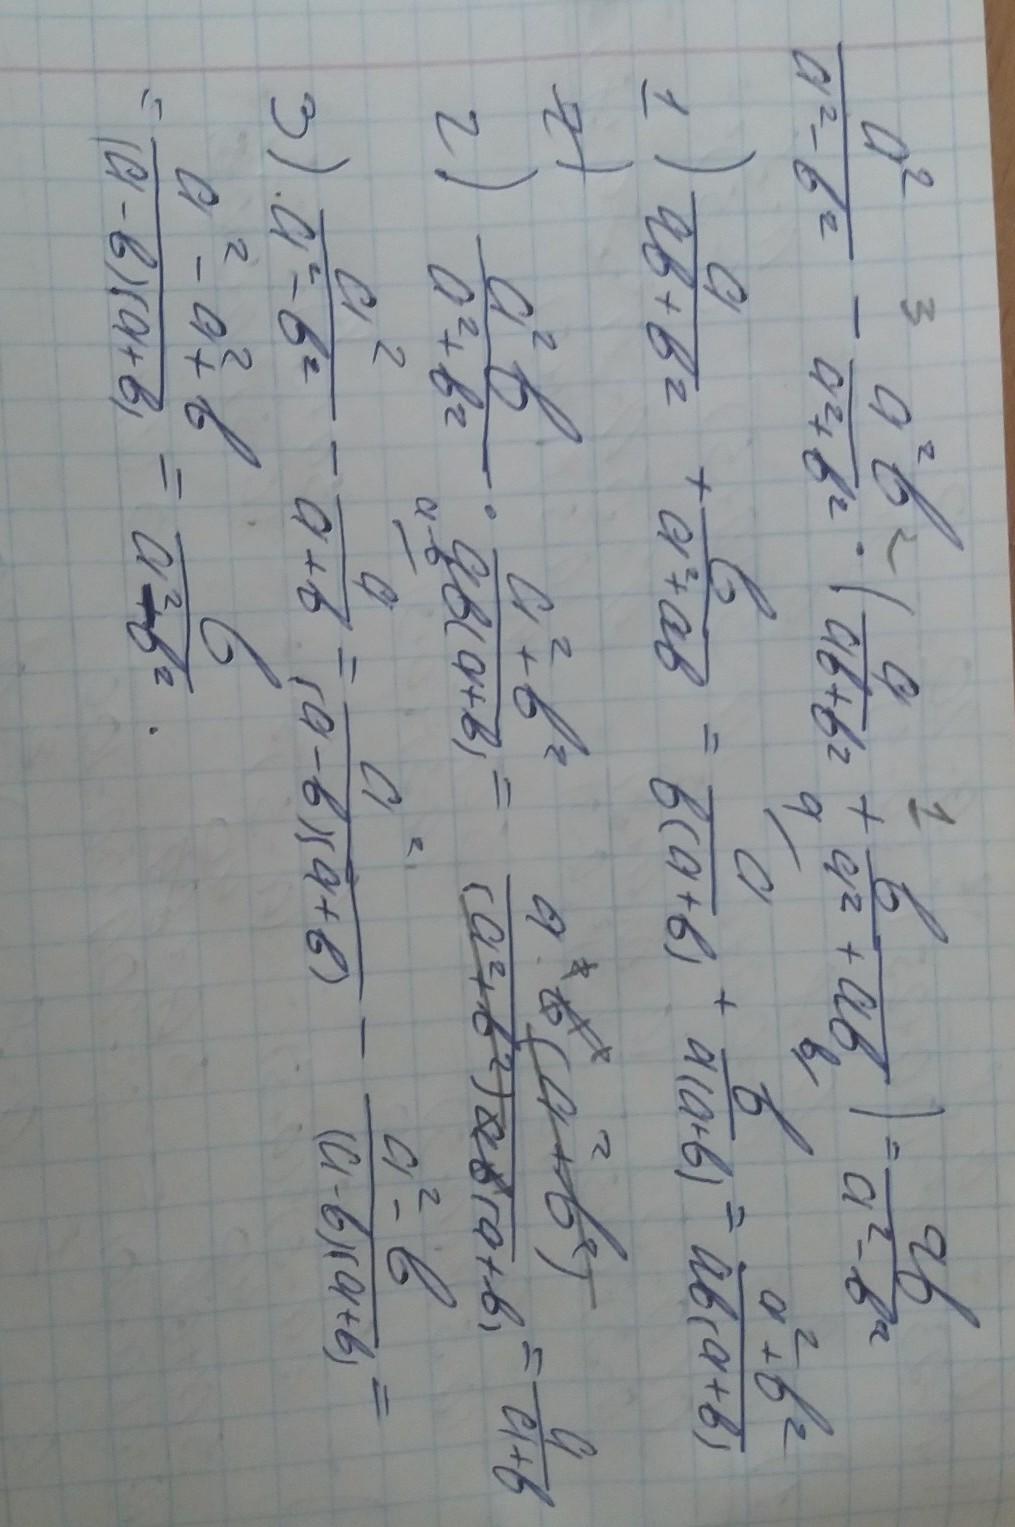 a²/(a²-b²) - a²b/(a²+b²) · (a/(ab+b²) + b/(a²+ab)) = ab/(a²-b²)
1) a/(ab+b²) + b/(a²+ab) = a/(b(a+b)) + b/(a(a+b)) = (a²+b²)/(ab(a+b))
2) a²b/(a²+b²) · (a²+b²)/(ab(a+b)) = a²b(a²+b²)/((a²+b²)ab(a+b)) = a/(a+b)
3) a²/(a²-b²) - a/(a+b) = a²/((a-b)(a+b)) - (a²-b)/((a-b)(a+b)) =
= (a²-a²+b)/((a-b)(a+b)) = b/(a²-b²).